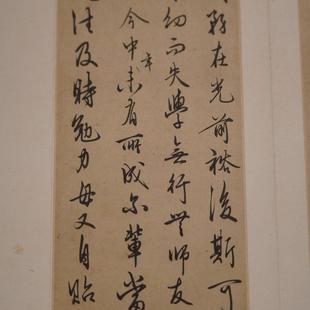 務在光前裕後斯可
幼而失學無行無師友
今中年未有所成尔輩當
往及時勉力毋又自貽